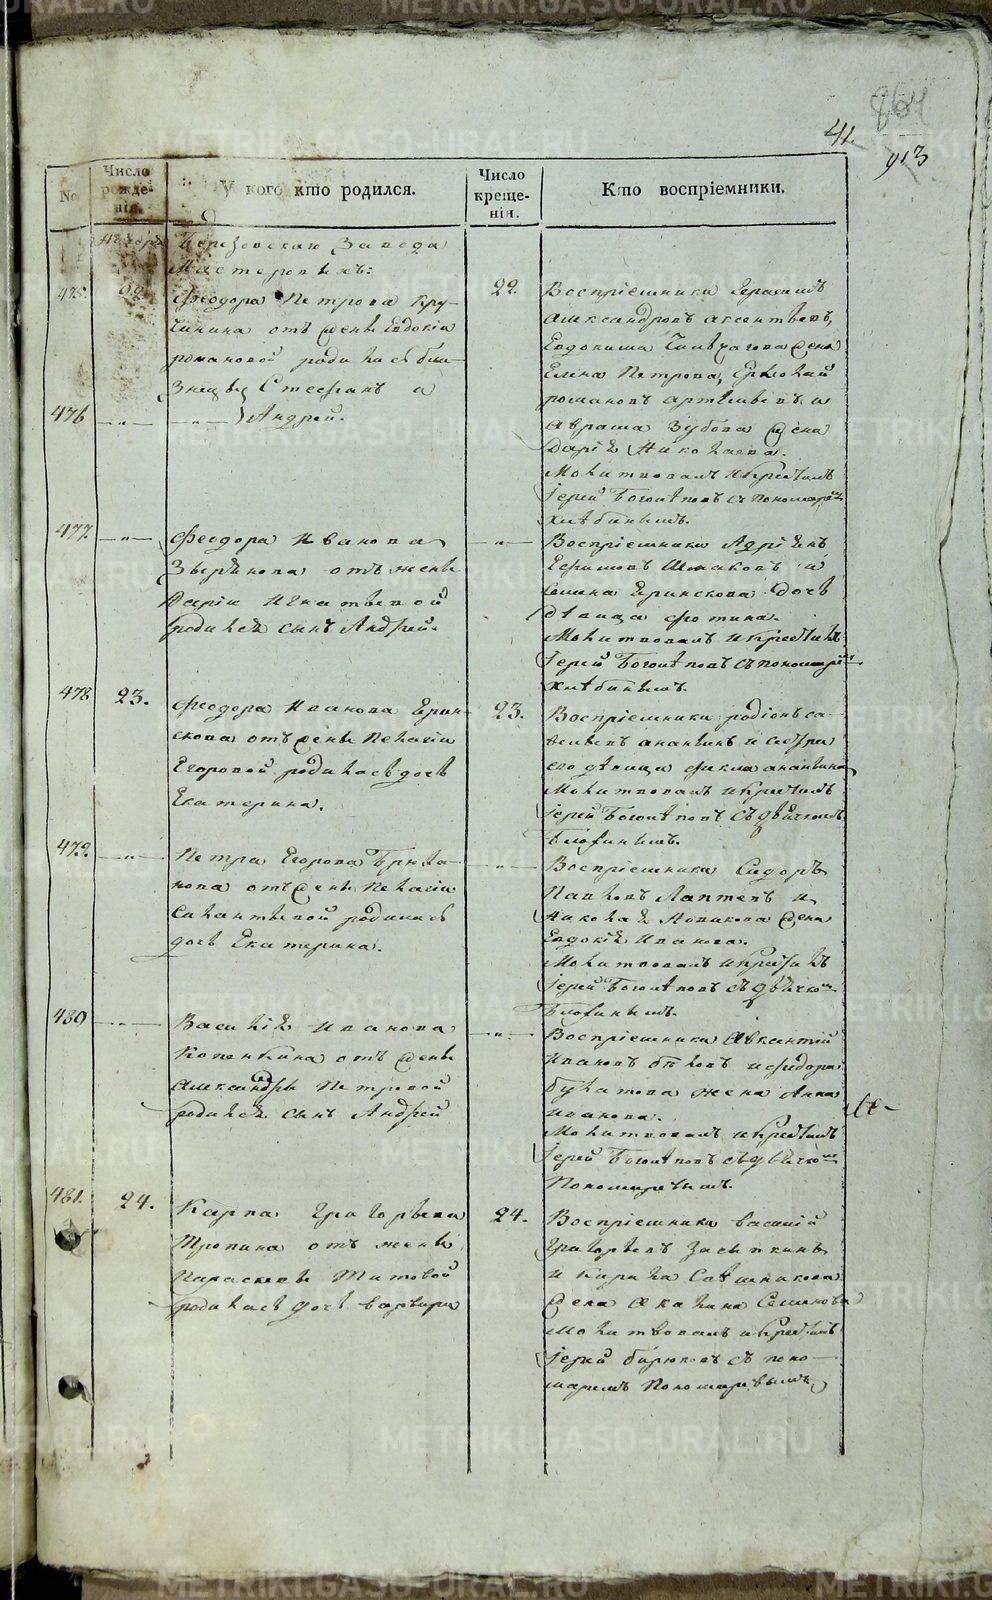 41.
864
913
No
Число рожденія.
У кого кто родился.
Число крещенія.
Кто воспріемники.
Березовскаго Завода
Мастеровыхъ:
475.
22
Феодора Петрова Кру-
чинина отъ жены Евдокіи
романовой родились бли-
знецы Стефанъ и
22.
Воспріемники Герасимъ
александровъ аксентьевъ,
Евдокима жена
Елена Петрова,
романовъ артемьевъ и
476
—„—
—„— Андрей.
аврама Зубова жена
Дарія Николаева.
Молитвовалъ и крестилъ
іерей Боголѣповъ съ пономаремъ
Хлѣбинымъ.
477.
—„—
Феодора Иванова
Звѣрева отъ жены
Даріи Игнатьевой
родился сынъ Андрей.
—„—
Воспріемники Адріянъ
Ефимовъ Шмаковъ и
Семена Еринскова дочь
дѣвица Фотина.
Молитвовалъ и крестилъ
іерей Боголѣповъ съ пономаремъ
Хлѣбинымъ.
478
23.
Феодора Иванова Ерин-
скова отъ жены Пелагіи
Егоровой родилась дочь
Екатерина.
23.
Воспріемники родіонъ са-
вельевъ ананьинъ и сестра
его дѣвица Фекла ананьина
Молитвовалъ и крестилъ
іерей Боголѣповъ съ дьячкомъ
479.
—„—
Петра Егорова
отъ жены Пелагіи
Силантьевой родилась
дочь Екатерина.
—„—
Воспріемники Сидоръ
Павловъ Лаптевъ и
Николая Новикова жена
Евдокія Иванова.
Молитвовалъ и крестилъ
іерей Боголѣповъ съ дьячком
480
—„—
Василія Иванова
Копенкина отъ жены
александры Петровой
родился сынъ Андрей
—„—
Воспріемники Авксентій
Ивановъ быковъ и Фидора
булатова жена Анна
иванова.
Молитвовалъ и крестилъ
іерей Боголѣповъ съ дьячкомъ
Пономаревымъ.
481.
24.
Карпа Григорьева
Тропина отъ жены
Параскевы Титовой
родилась дочь варвара
24.
Воспріемники василій
Григорьевъ Засыпкинъ
и Кирила Савѣшникова
жена Акилина Семенова
Молитвовалъ и крестилъ
іерей бирюковъ съ поно-
маремъ Пономаревымъ
METRIKI.GASO-URAL.RU